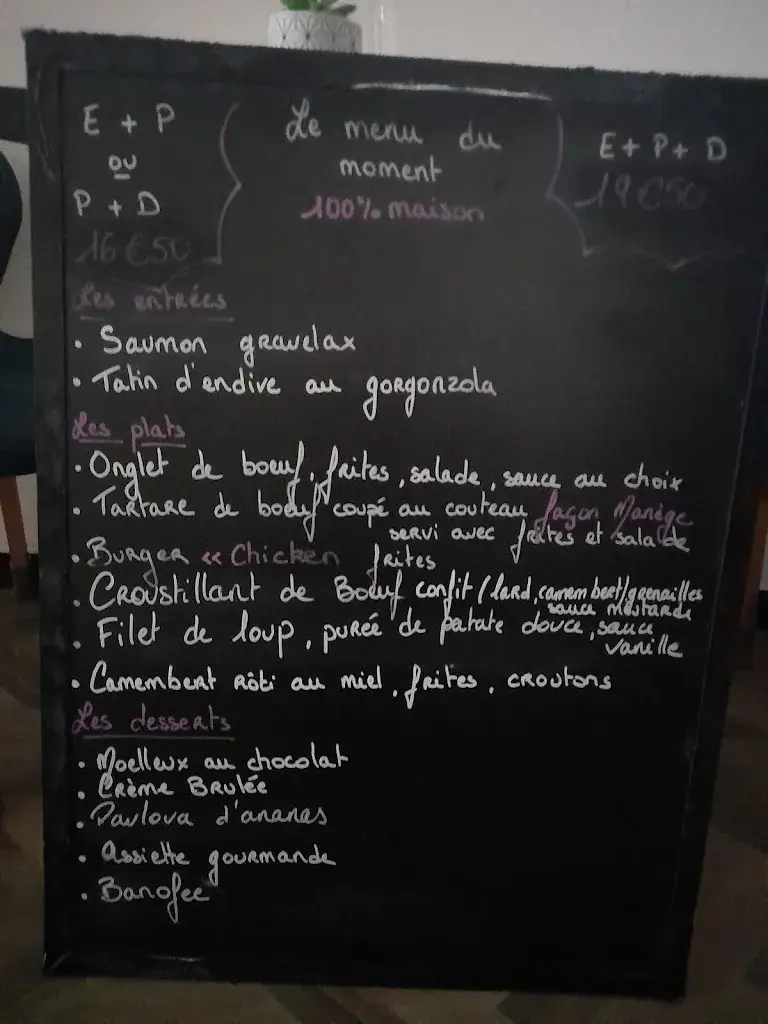 E + P
ou
P + D
16€50
Le menu du
moment
100% maison
E + P + D
19€50
Les entrées
• Saumon gravelax
• Tatin d'endive au gorgonzola
Les plats
• Onglet de boeuf, frites, salade, sauce au choix
• Tartare de boeuf coupé au couteau façon Manège
servi avec frites et salade
• Burger « Chicken frites
• Croustillant de Boeuf confit (lard, camembert) grenailles
sauce moutarde
• Filet de loup, purée de patate douce, sauce
vanille
• Camembert rôti au miel, frites, croutons
Les desserts
• Moelleux au chocolat
• Crème Brulée
• Pavlova d'ananas
• Assiette gourmande
• Banofee